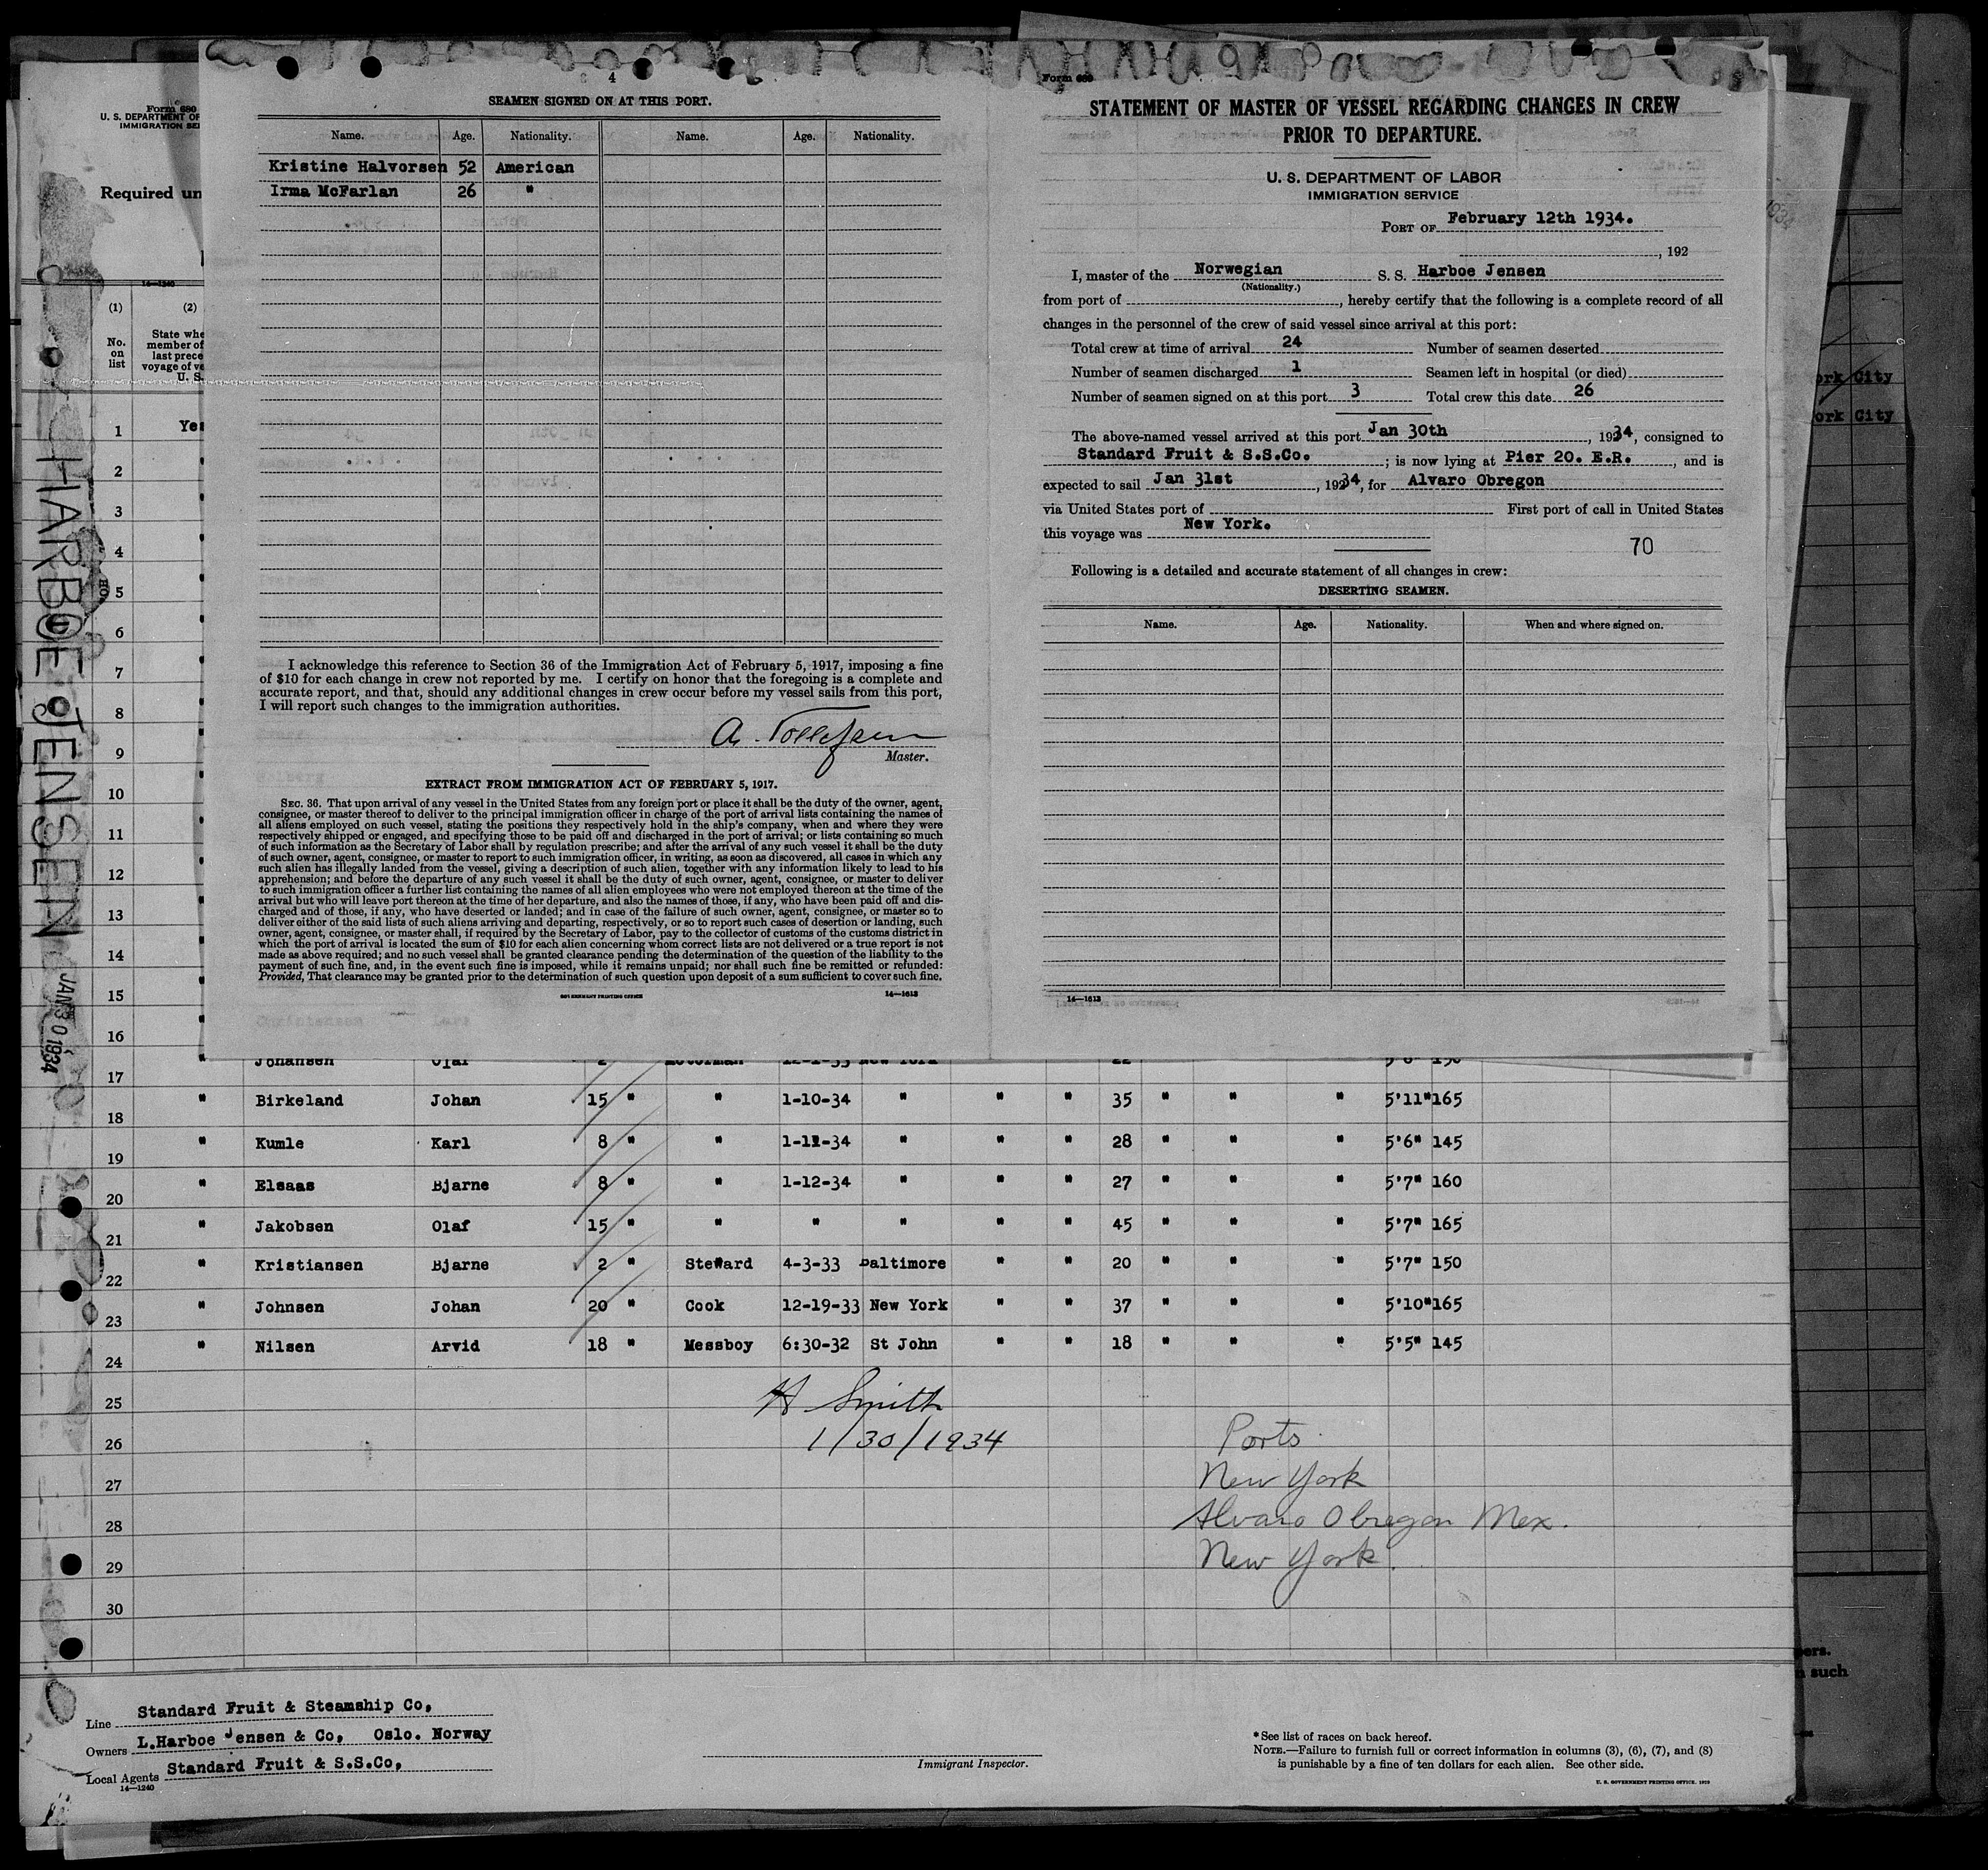 4
SEAMEN SIGNED ON AT THIS PORT.
Name. Age. Nationality. Name. Age. Nationality.
Kristine Halvorsen 52 American
Irma McFarlan 26 "
I acknowledge this reference to Section 36 of the Immigration Act of February 5, 1917, imposing a fine
of $10 for each change in crew not reported by me. I certify on honor that the foregoing is a complete and
accurate report, and that, should any additional changes in crew occur before my vessel sails from this port,
I will report such changes to the immigration authorities.
A. Tollefsen
Master.
EXTRACT FROM IMMIGRATION ACT OF FEBRUARY 5, 1917.
SEC. 36. That upon arrival of any vessel in the United States from any foreign port or place it shall be the duty of the owner, agent,
consignee, or master thereof to deliver to the principal immigration officer in charge of the port of arrival lists containing the names of
all aliens employed on such vessel, stating the positions they respectively hold in the ship's company, when and where they were
respectively shipped or engaged, and specifying those to be paid off and discharged in the port of arrival; or lists containing so much
of such information as the Secretary of Labor shall by regulation prescribe; and after the arrival of any such vessel it shall be the duty
of such owner, agent, consignee, or master to report to such immigration officer, in writing, as soon as discovered, all cases in which any
such alien has illegally landed from the vessel, giving a description of such alien, together with any information likely to lead to his
apprehension; and before the departure of any such vessel it shall be the duty of such owner, agent, consignee, or master to deliver
to such immigration officer a further list containing the names of all alien employees who were not employed thereon at the time of the
arrival but who will leave port thereon at the time of her departure, and also the names of those, if any, who have been paid off and dis-
charged and of those, if any, who have deserted or landed; and in case of the failure of such owner, agent, consignee, or master so to
deliver either of the said lists of such aliens arriving and departing, respectively, or so to report such cases of desertion or landing, such
owner, agent, consignee, or master shall, if required by the Secretary of Labor, pay to the collector of customs of the customs district in
which the port of arrival is located the sum of $10 for each alien concerning whom correct lists are not delivered or a true report is not
made as above required; and no such vessel shall be granted clearance pending the determination of the question of the liability to the
payment of such fine, and, in the event such fine is imposed, while it remains unpaid; nor shall such fine be remitted or refunded:
Provided, That clearance may be granted prior to the determination of such question upon deposit of a sum sufficient to cover such fine.
GOVERNMENT PRINTING OFFICE 14—1613
Form 689
STATEMENT OF MASTER OF VESSEL REGARDING CHANGES IN CREW
PRIOR TO DEPARTURE.
U. S. DEPARTMENT OF LABOR
IMMIGRATION SERVICE
PORT OF February 12th 1934.
, 192
I, master of the Norwegian S. S. Harboe Jensen
(Nationality.)
from port of , hereby certify that the following is a complete record of all
changes in the personnel of the crew of said vessel since arrival at this port:
Total crew at time of arrival 24 Number of seamen deserted
Number of seamen discharged 1 Seamen left in hospital (or died)
Number of seamen signed on at this port 3 Total crew this date 26
The above-named vessel arrived at this port Jan 30th , 1934, consigned to
Standard Fruit & S.S.Co. ; is now lying at Pier 20. E.R. , and is
expected to sail Jan 31st , 1934, for Alvaro Obregon
via United States port of First port of call in United States
this voyage was New York.
70
Following is a detailed and accurate statement of all changes in crew:
DESERTING SEAMEN.
Name. Age. Nationality. When and where signed on.
14—1613
Form 680
U. S. DEPARTMENT OF
IMMIGRATION SE
Required un
14—1240
(1) (2)
No. on list
State whe
member of
last prece
voyage of ve
U. S.
1 Yes
2
3
4
5
6
7
8
9
10
11
12
13
14
15
16
HARBOE JENSEN
JAN 30 1934
17 Johansen Olaf 2 Motorman 12-1-33 New York 22 5'8" 150
18 " Birkeland Johan 15 " " 1-10-34 " " " 35 " " " 5'11" 165
19 " Kumle Karl 8 " " 1-11-34 " " " 28 " " " 5'6" 145
20 " Elsaas Bjarne 8 " " 1-12-34 " " " 27 " " " 5'7" 160
21 " Jakobsen Olaf 15 " " " " " " 45 " " " 5'7" 165
22 " Kristiansen Bjarne 2 " Steward 4-3-33 Baltimore " " 20 " " " 5'7" 150
23 " Johnsen Johan 20 " Cook 12-19-33 New York " " 37 " " " 5'10" 165
24 " Nilsen Arvid 18 " Messboy 6:30-32 St John " " 18 " " " 5'5" 145
25 H Smith
26 1/30/1934
Ports
27 New York
28 Alvaro Obregon Mex.
29 New York.
30
ork City
ork City
ers.
such
Line Standard Fruit & Steamship Co,
Owners L.Harboe Jensen & Co, Oslo. Norway
Local Agents Standard Fruit & S.S.Co,
14—1240
Immigrant Inspector.
*See list of races on back hereof.
NOTE.—Failure to furnish full or correct information in columns (3), (6), (7), and (8)
is punishable by a fine of ten dollars for each alien. See other side.
U. S. GOVERNMENT PRINTING OFFICE: 1929